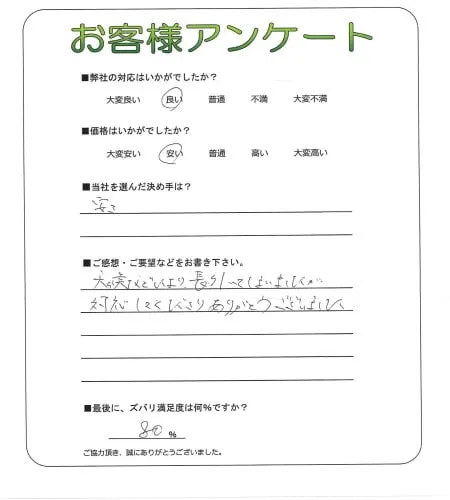 お客様アンケート
■弊社の対応はいかがでしたか?
大変良い 良い 普通 不満 大変不満
■価格はいかがでしたか?
大変安い 安い 普通 高い 大変高い
■当社を選んだ決め手は?
安さ
■ご感想・ご要望などをお書き下さい。
天候などにより、長引いてしまいましたが
対応してくださりありがとうございました
■最後に、ズバリ満足度は何%ですか?
80 %
ご協力頂き、誠にありがとうございました。